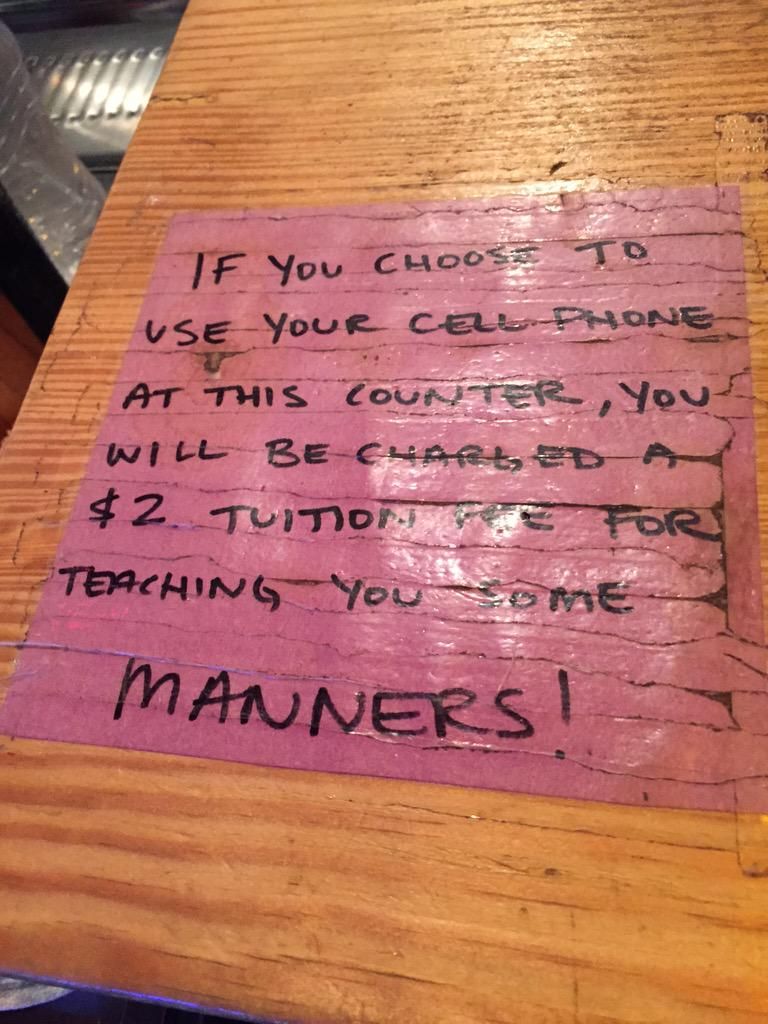 IF YOU CHOOSE TO
USE YOUR CELL PHONE
AT THIS COUNTER, YOU
WILL BE CHARGED A
$2 TUITION FEE FOR
TEACHING YOU SOME
MANNERS!